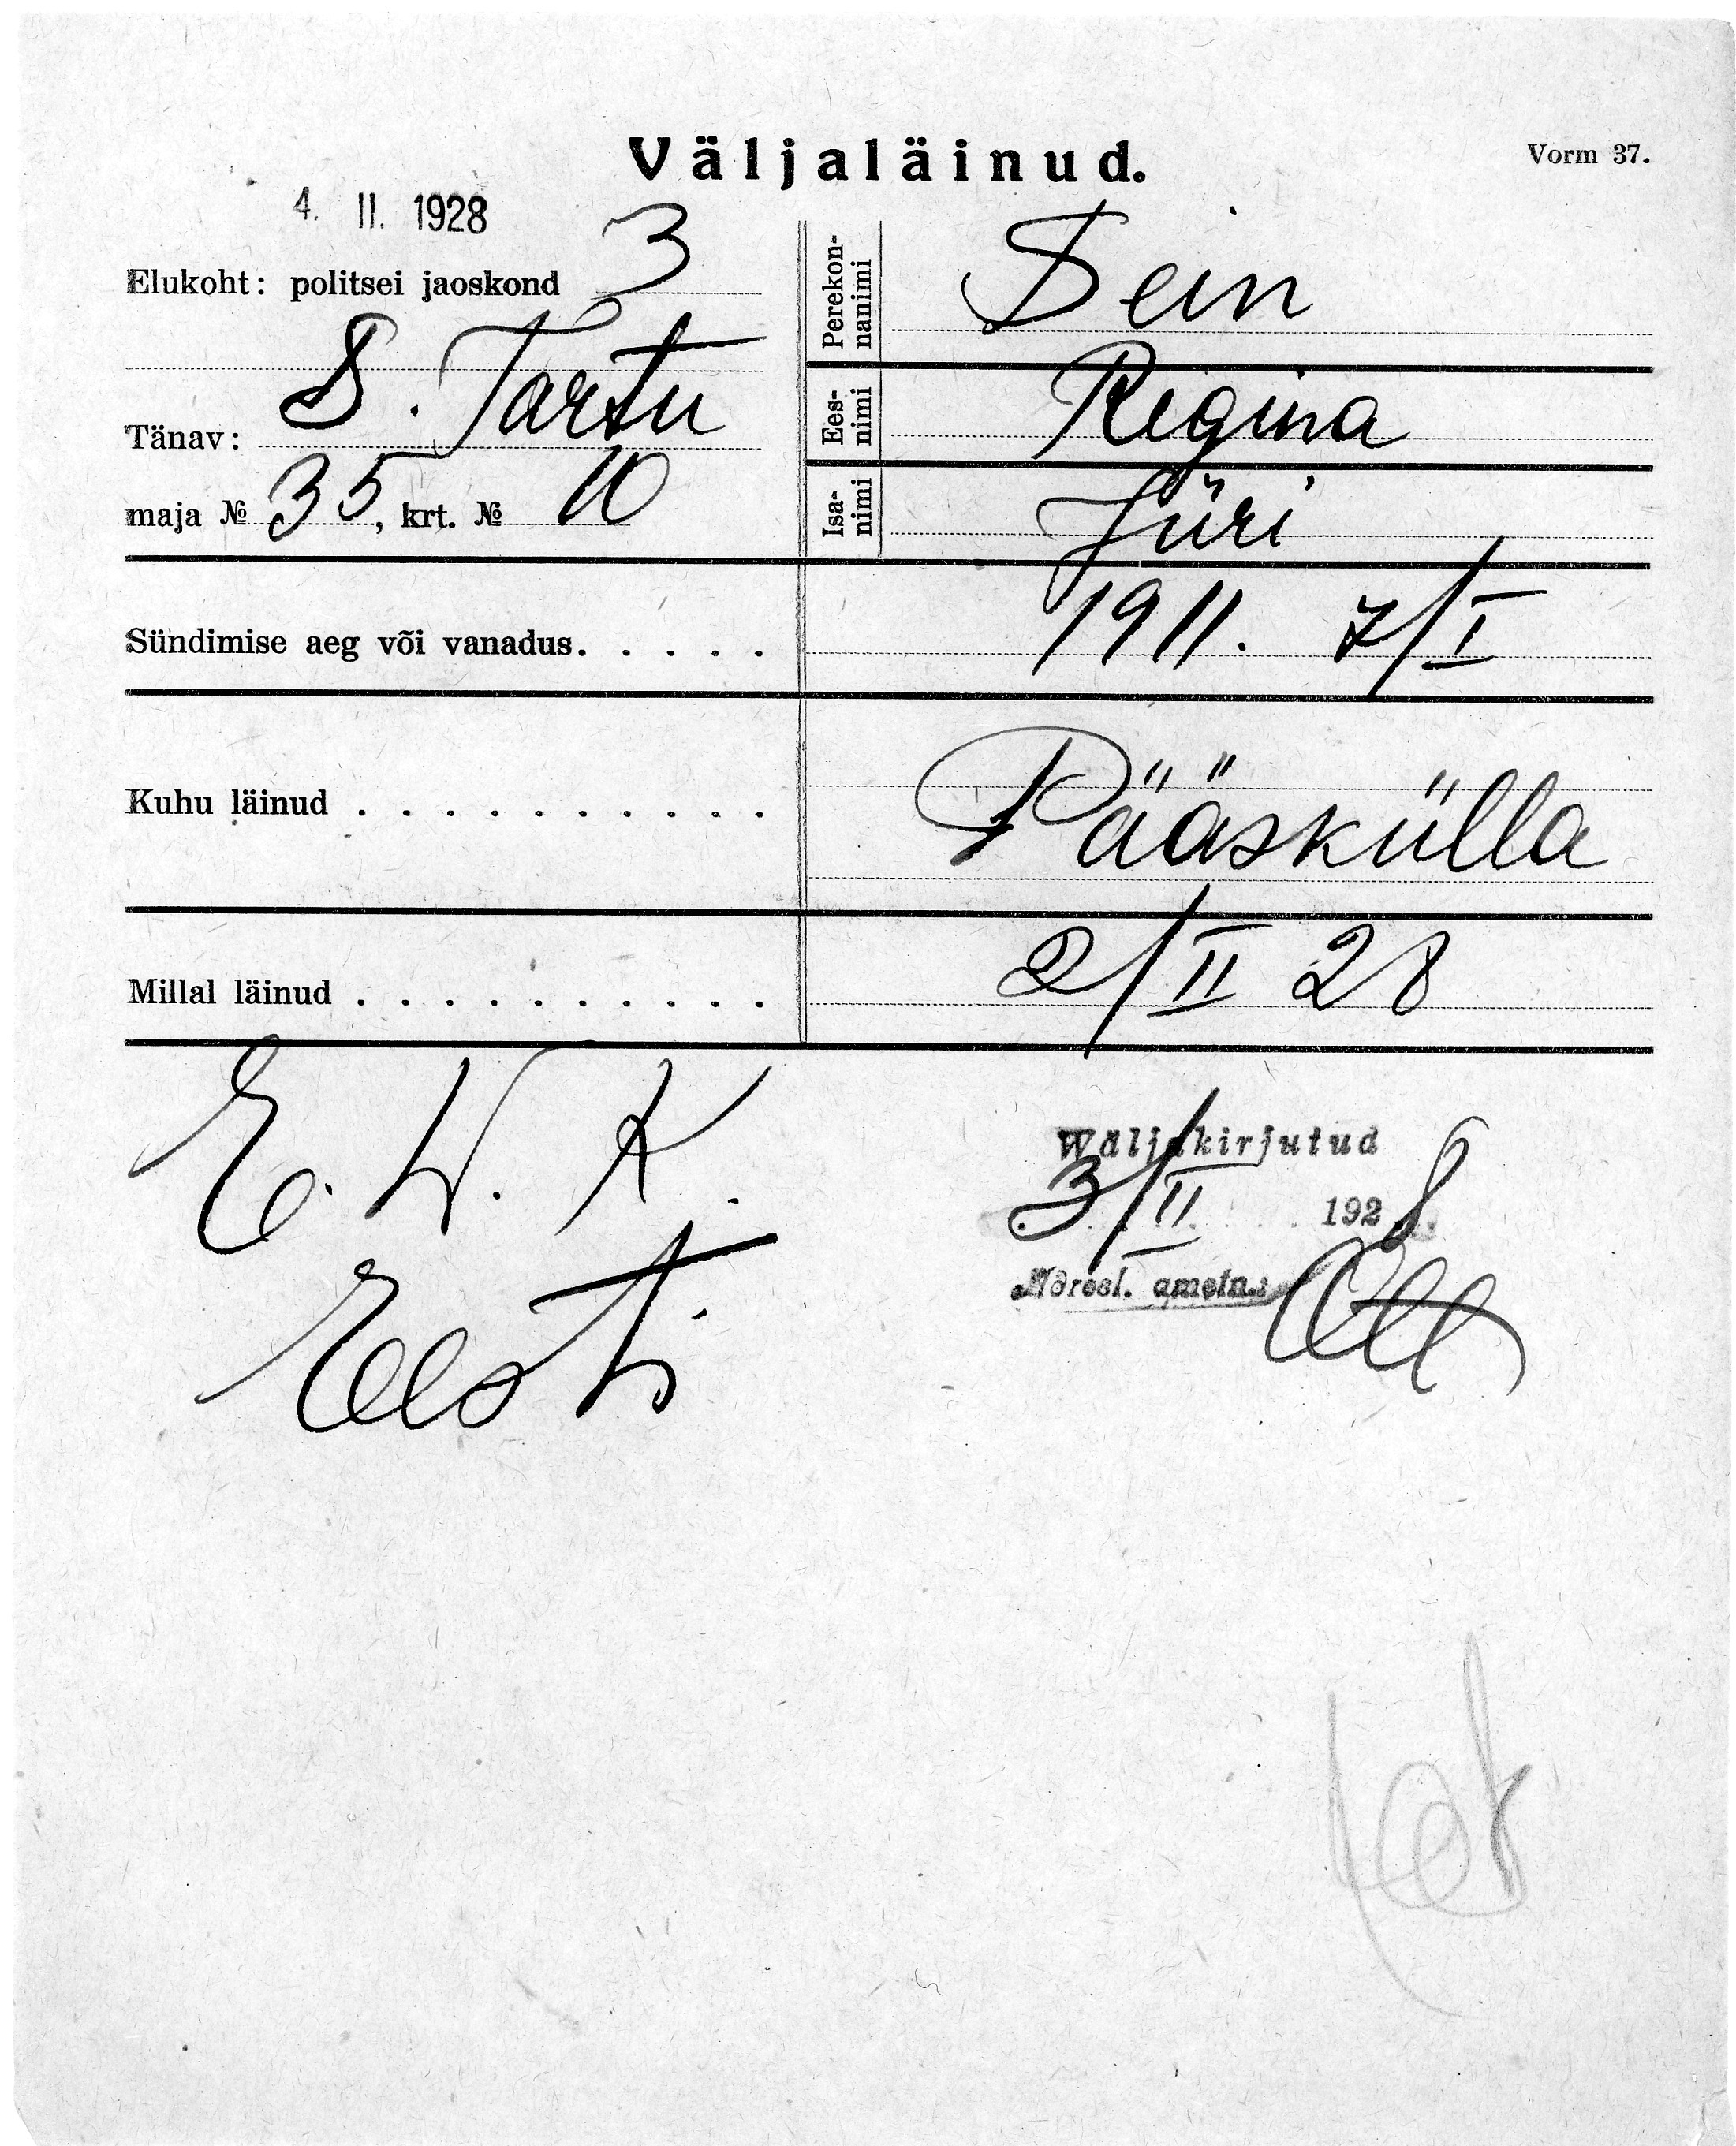 Väljaläinud.
Vorm 37.
4. II. 1928
Elukoht: politsei jaoskond 3
Tänav: S. Tartu
maja № 35, krt. № 10
Perekonnanimi Sein
Eesnimi Regina
Isanimi Jüri
Sündimise aeg või vanadus..... 1911. 7/I
Kuhu läinud.......... Pääskülla
Millal läinud.......... 2/II 28
E. W. K.
Eesti
Wäljakirjutud
3/II 1928
Adresl. ametn.: